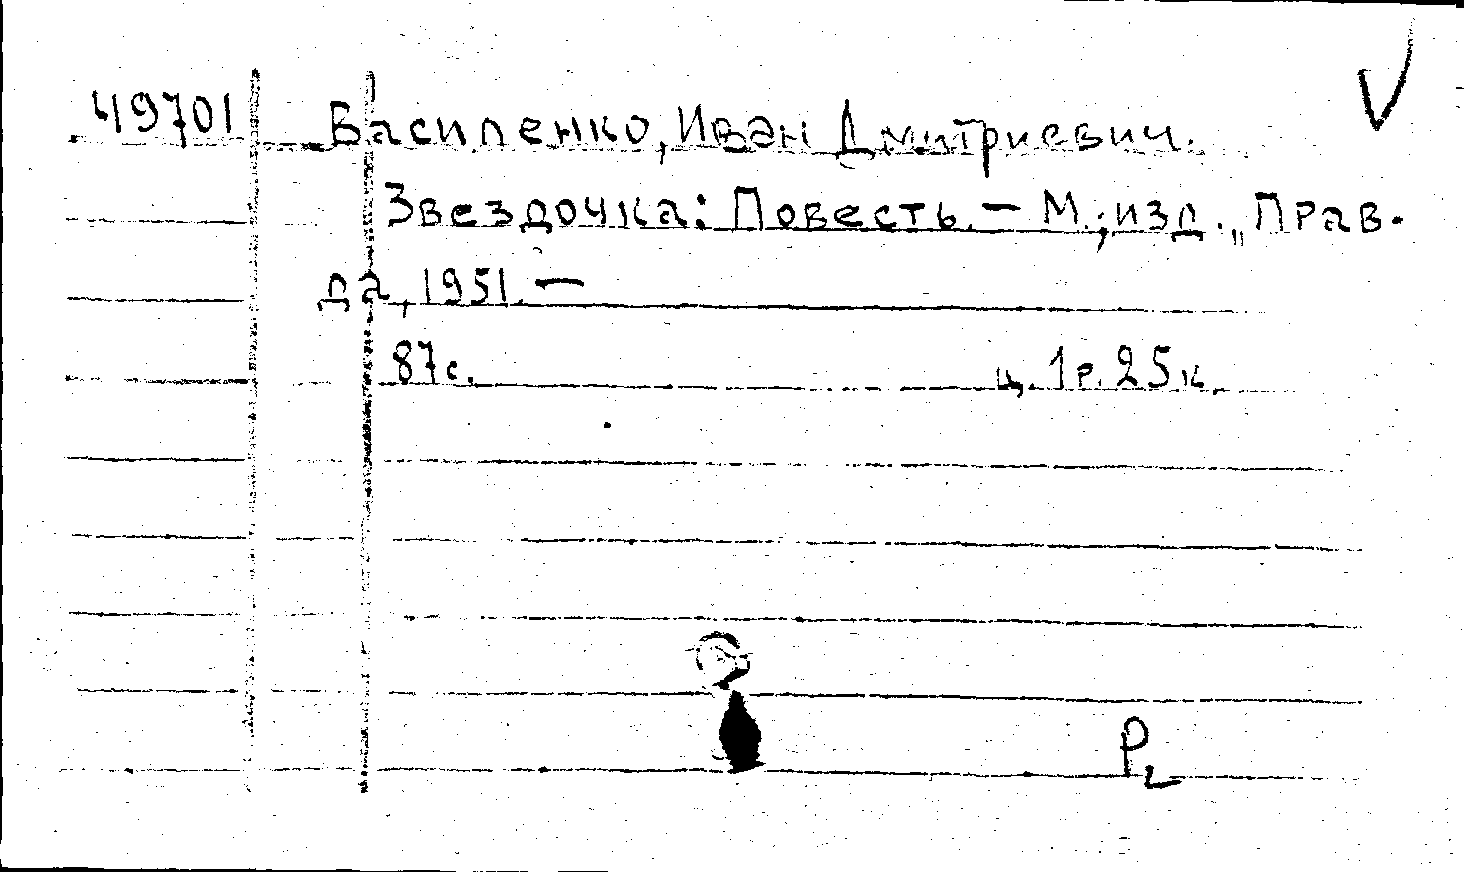 49701 Василенко, Иван Дмитриевич.
Звездочка: Повесть. — М.; изд. „Прав-
да, 1951. —
87с. ц. 1р. 25к.
Р2